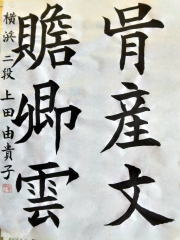 産文
贍卿雲
横浜 二段 上田由貴子